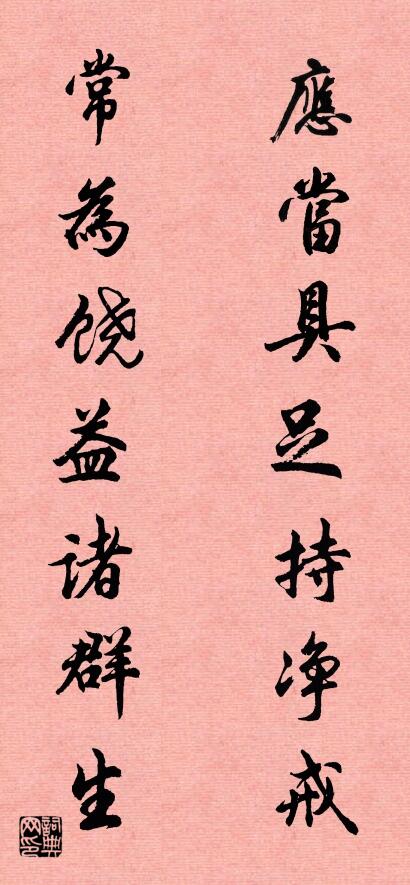 應當具足持净戒
常為饒益诸群生
詞典网印